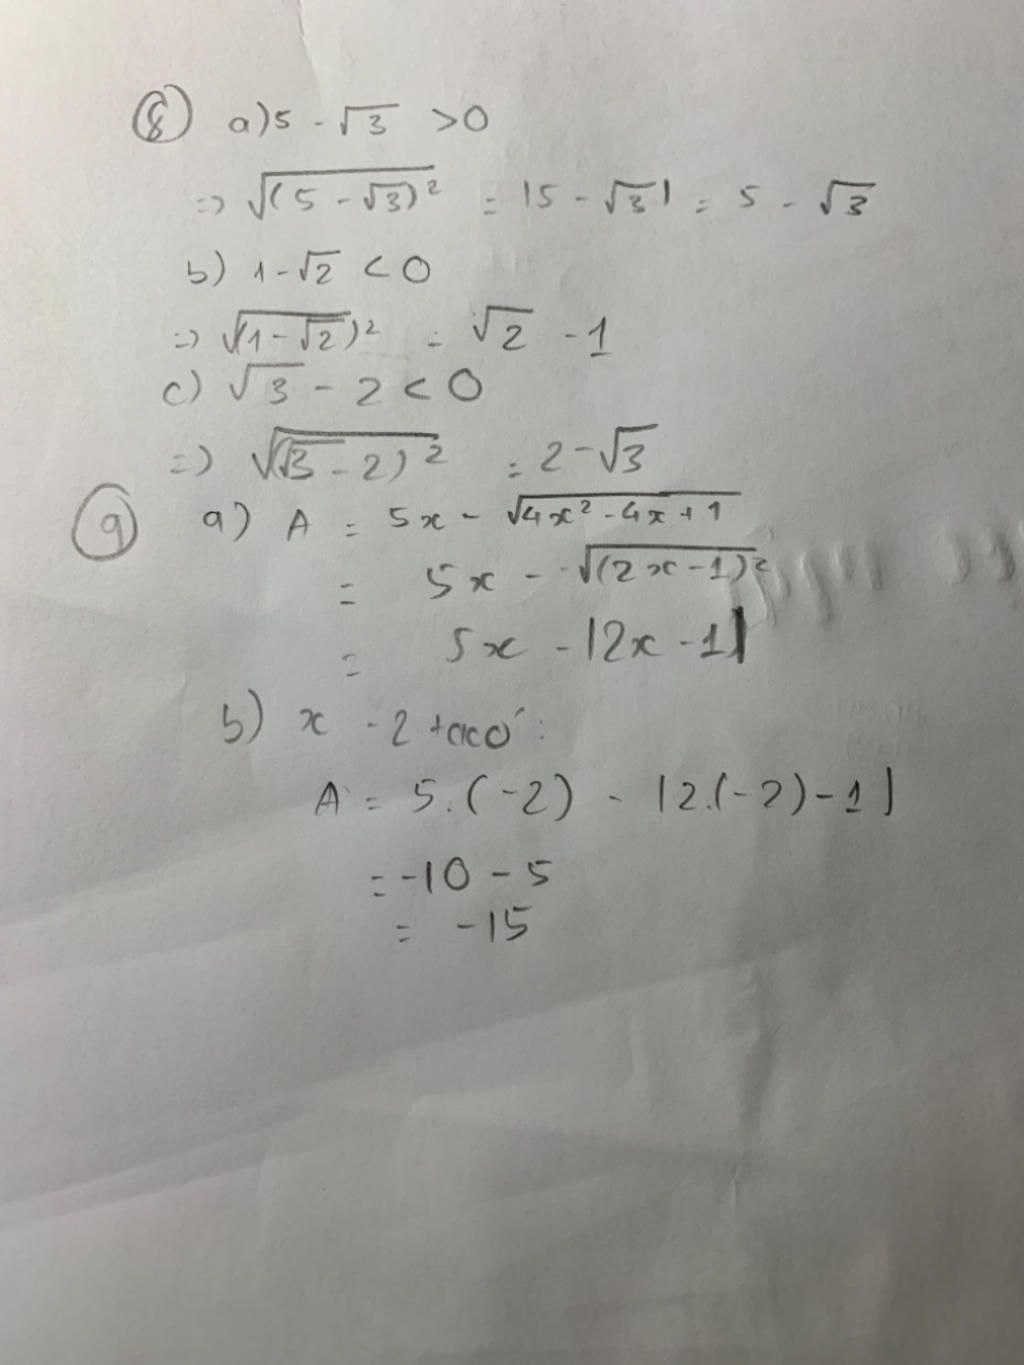 ⑧ a) 5 - √3 > 0
=> √(5 - √3)² = |5 - √3| = 5 - √3
b) 1 - √2 < 0
=> √(1 - √2)² = √2 - 1
c) √3 - 2 < 0
=> √(√3 - 2)² = 2 - √3
⑨ a) A = 5x - √4x² - 4x + 1
= 5x - √(2x - 1)²
= 5x - |2x - 1|
b) x - 2 ta có:
A = 5.(-2) - |2.(-2) - 1|
= -10 - 5
= -15